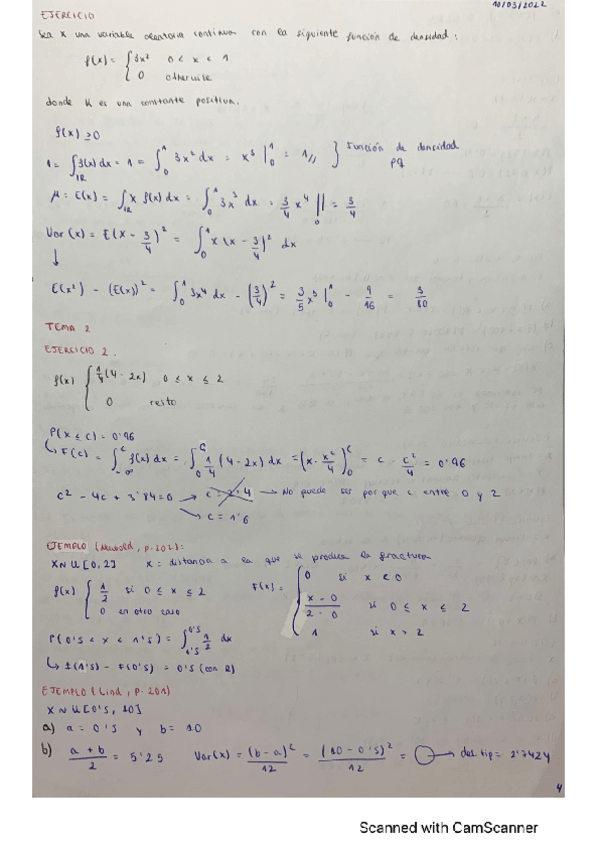 10/03/2022
EJERCICIO
Sea X una variable aleatoria continua con la siguiente función de densidad:
f(x) = { 3x² 0 < x < 1
0 otherwise
donde K es una constante positiva.
f(x) ≥ 0
1 = ∫_IR f(x) dx = 1 = ∫_0^1 3x² dx = x³ |_0^1 = 1 // } Función de densidad pq
μ = E(x) = ∫_IR x f(x) dx = ∫_0^1 3x³ dx = 3/4 x⁴ ||_0^1 = 3/4
Var(x) = E(x - 3/4)² = ∫_0^1 x (x - 3/4)² dx
↓
E(x²) - (E(x))² = ∫_0^1 3x⁴ dx - (3/4)² = 3/5 x⁵ |_0^1 - 9/16 = 3/80
TEMA 2
EJERCICIO 2.
f(x) { 1/4 (4 - 2x) 0 ≤ x ≤ 2
0 resto
P(X ≤ c) = 0'96
↳ F(c) = ∫_-∞^c f(x) dx = ∫_0^c 1/4 (4 - 2x) dx = (x - x²/4)_0^c = c - c²/4 = 0'96
c² - 4c + 3'84 = 0 → c = 2'4 → No puede ser por que c entre 0 y 2
↘ c = 1'6
EJEMPLO (Newbold, p.202):
X ~ U[0,2] x = distancia a la que se produce la fractura
f(x) { 1/2 si 0 ≤ x ≤ 2
0 en otro caso
F(x) = { 0 si x < 0
x - 0 / 2 - 0 si 0 ≤ x ≤ 2
1 si x > 2
P(0'5 < x < 1'5) = ∫_1'5^0'5 1/2 dx
↳ F(1'5) - F(0'5) = 0'5 (con R)
EJEMPLO (Lind, p.201)
X ~ U[0'5, 10]
a) a = 0'5 y b = 10
b) a + b / 2 = 5'25 Var(x) = (b - a)² / 12 = (10 - 0'5)² / 12 = ◯ → des tip = 2'7424
4
Scanned with CamScanner